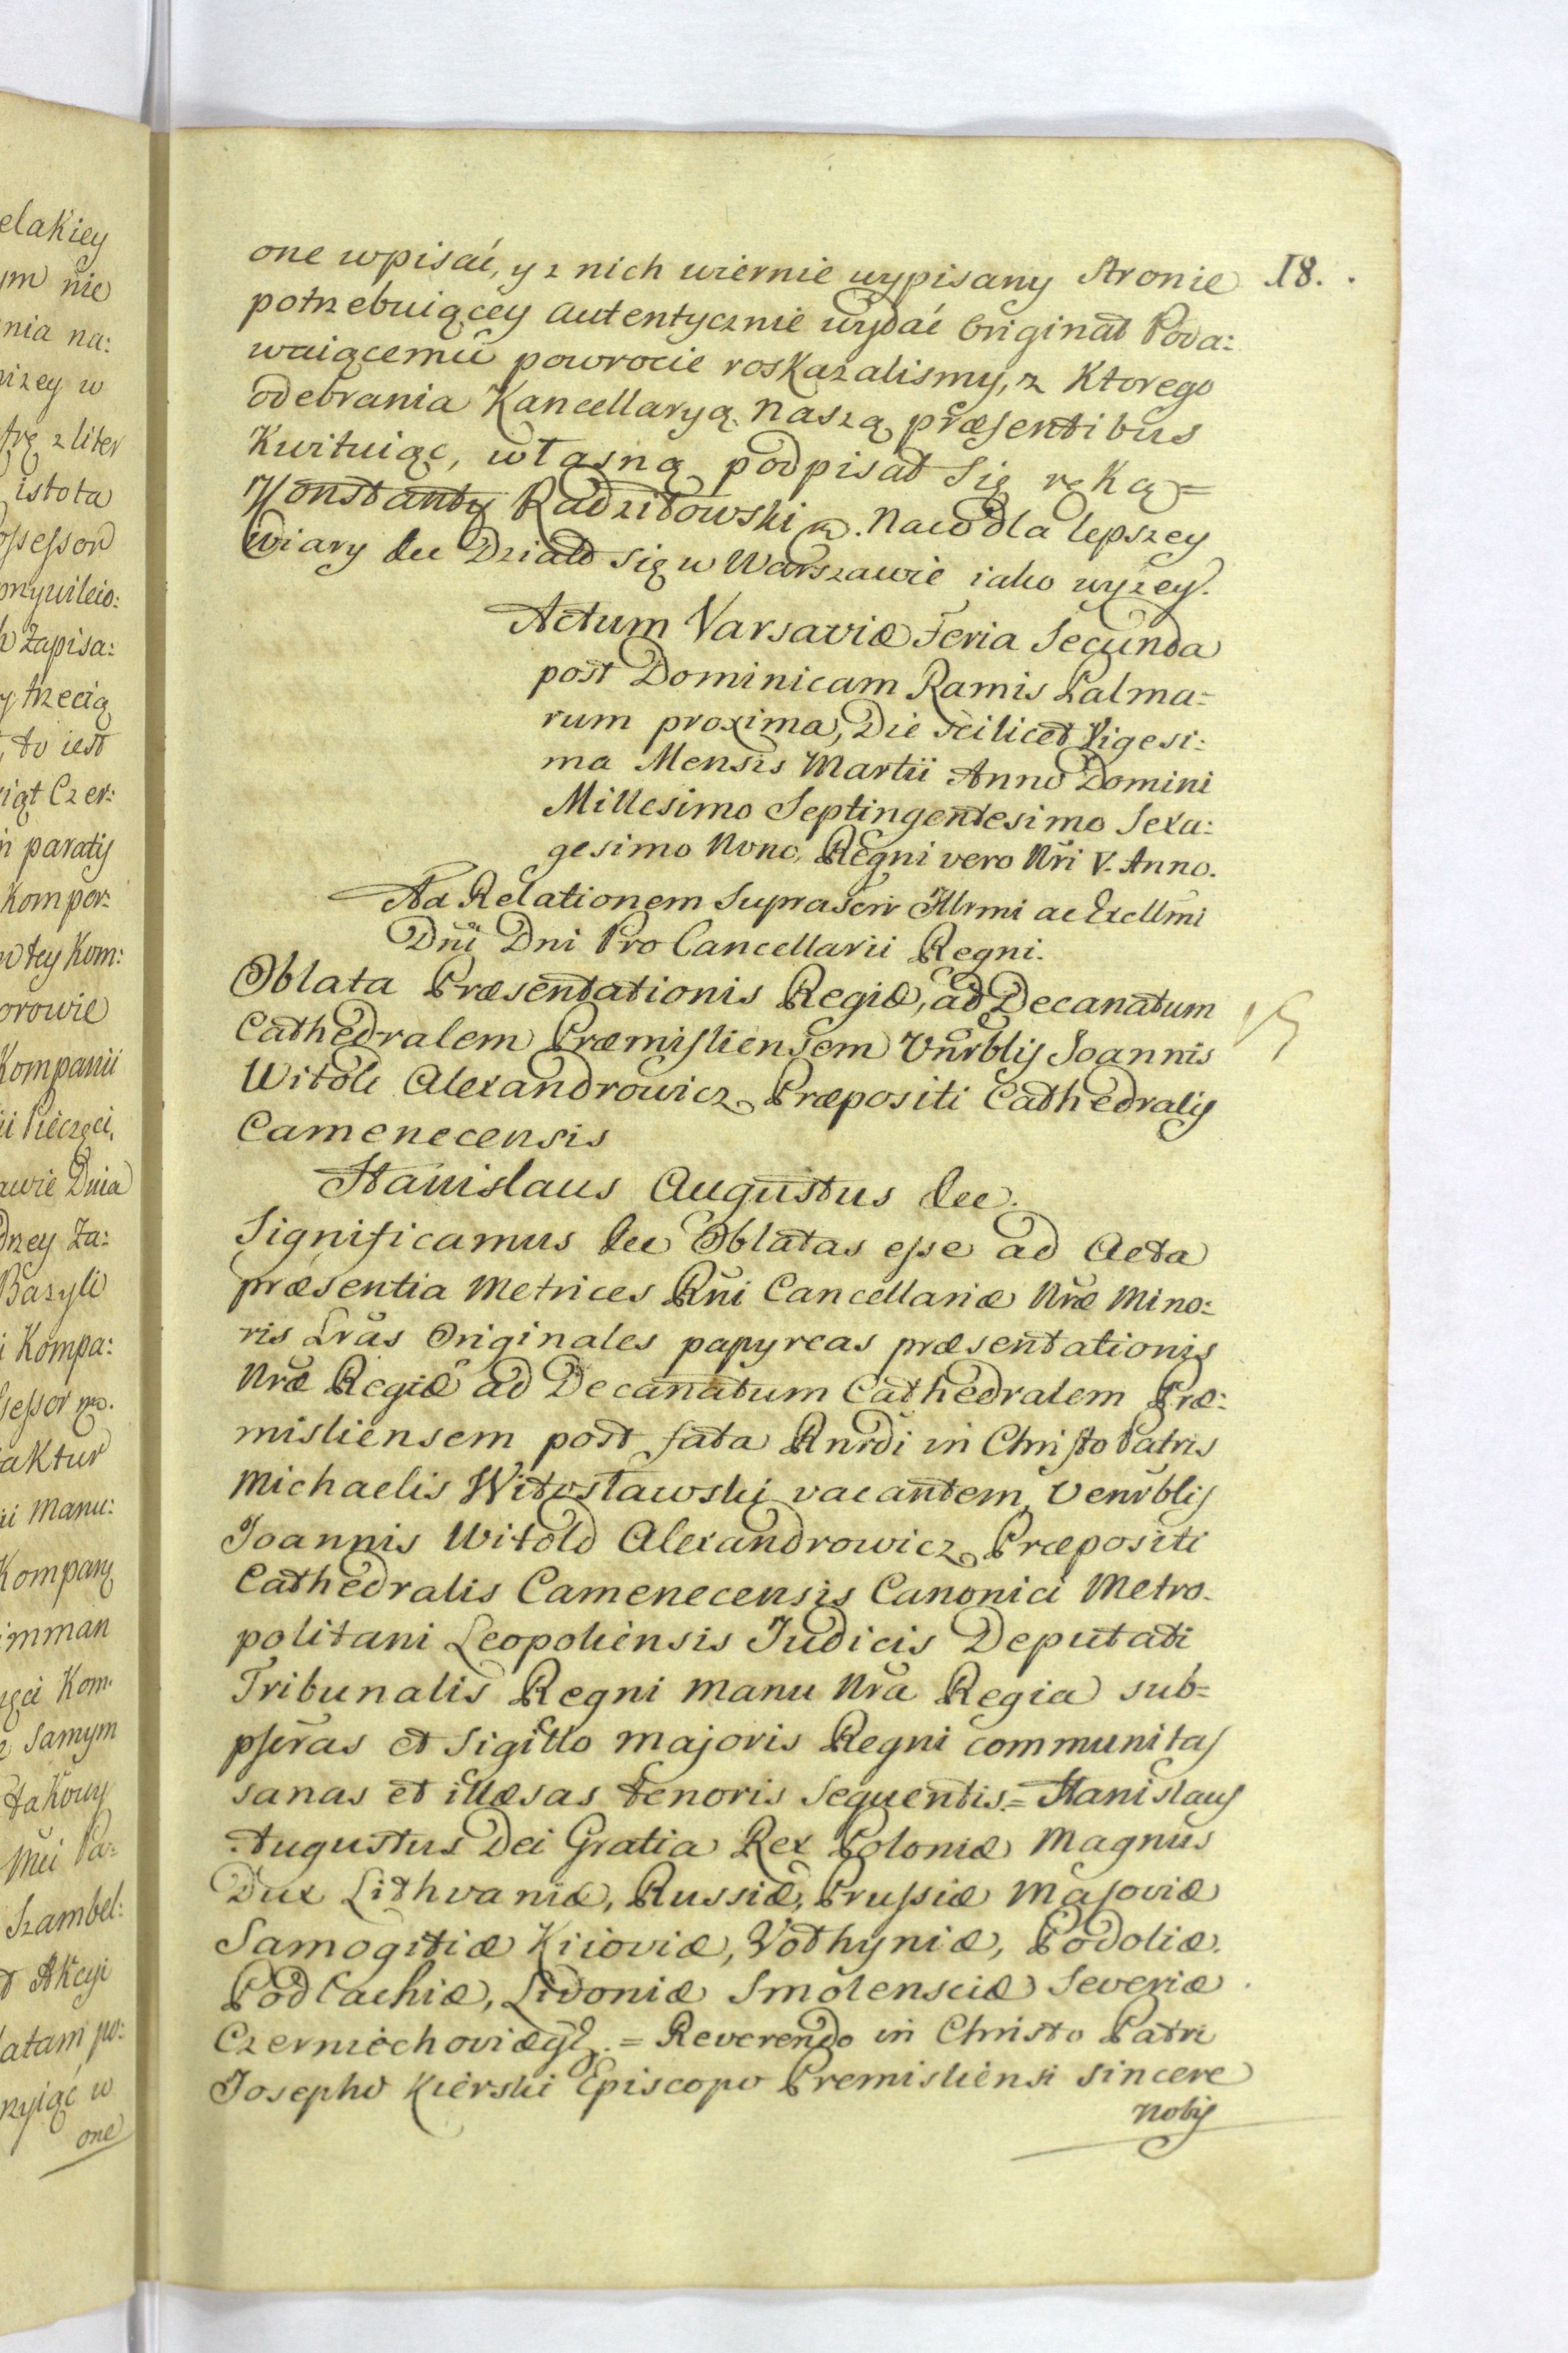 elakiey
ym nie
nia na:
niżey w
trę z liter
istota
ossessor
przywileio:
h Zapisa:
y trzecią
to iest
iąt Czer:
n paratis
Kompor:
w tey Kom:
orowie
Kompanii
ii Pieczęci,
awie Dnia
dney Za:
Bazyli
i Kompa:
sessor mp.
aktur
ii Manu:
Kompanÿ
imman
ęci Kom.
z Samym
takowy
Mći Pa:
Szambel:
Akcyi
latam po:
rzyiąć w
one
18.
one wpisać, y z nich wiernie wypisany Stronie
potrzebuiącey autentycznie wydać Originał Poda:
waiącemu powrocie roskazalismy, z Ktorego
odebrania Kancellaryą Naszą præsentibus
Kwituiąc, własną podpisał Się ręką =
Konstanty Radziłowski mp. Na co dla lepszey
Wiary &c Działo się w Warszawie iako wyżey.
Actum Varsaviæ Feria Secunda
post Dominicam Ramis Palma=
rum proxima, Die scilicet Vigesi:
ma Mensis Martii Anno Domini
Millesimo Septingentesimo Sexa:
gesimo Nono, Regni vero Nri V. Anno.
Ad Relationem Suprascr Illrmi ac Excllmi
Dni Dni Pro Cancellarii Regni.
Oblata Præsentationis Regiæ, ad Decanatum
Cathedralem Præmisliensem Vnrblis Joannis
Witold Alexandrowicz Præpositi Cathedralis
Camenecensis
Stanislaus Augustus &c.
Significamus &c Oblatas esse ad Acta
præsentia Metrices Rni Cancellariæ Nræ Mino:
ris Lras Originales papyreas præsentationis
Nræ Regiæ ad Decanatum Cathedralem Præ:
misliensem post fata Rnrdi in Christo Patris
Michaelis Witosławski vacantem, Venrblis
Joannis Witold Alexandrowicz Præpositi
Cathedralis Camenecensis Canonici Metro.
politani Leopoliensis Judicis Deputati
Tribunalis Regni manu Nra Regia sub=
pscras et Sigillo majoris Regni communitas
sanas et illæsas tenoris sequentis = Stanislaus
Augustus Dei Gratia Rex Poloniæ Magnus
Dux Lithvaniæ, Russiæ, Prussiæ Masoviæ
Samogitiæ Kiioviæ, Vołhyniæ, Podoliæ.
Podlachiæ, Livoniæ Smolensciæ Severiæ
Czerniechoviæq3. = Reverendo in Christo Patri
Josepho Kierski Episcopo Premisliensi sincere
nobis